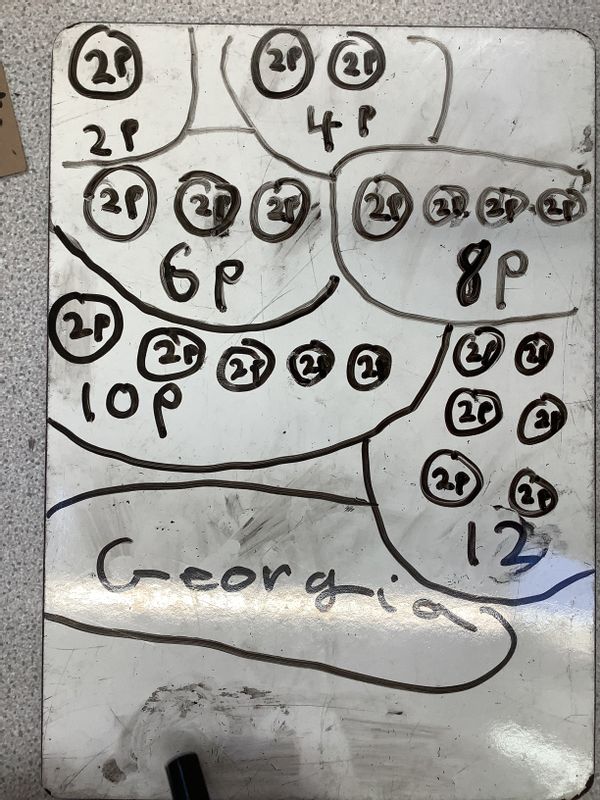 2p
2p
2p 2p
4p
2p 2p 2p
6p
2p 2p 2p 2p
8p
2p 2p 2p 2p 2p
10p
2p 2p
2p 2p
2p 2p
12
Georgia